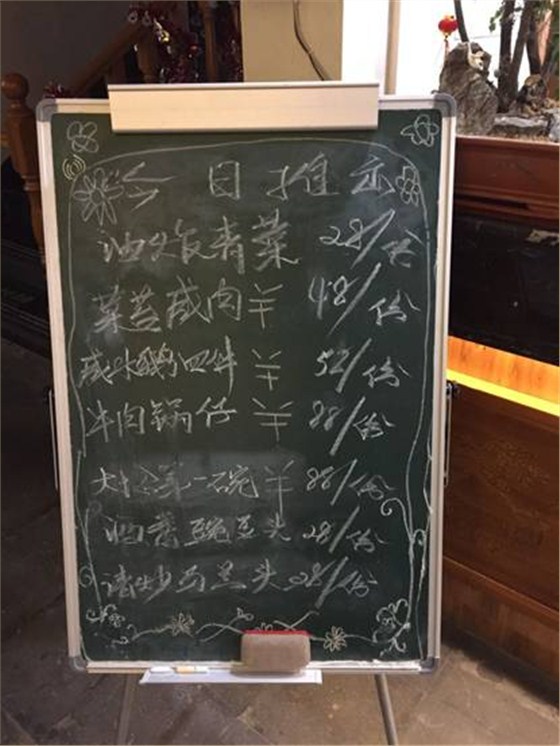 今日推出
油焖青菜 28/份
菜苔咸肉¥ 48/份
咸水鹅四件¥ 52/份
牛肉锅仔¥ 88/份
第一碗¥ 88/份
豌豆头 28/份
清炒马兰头 28/份